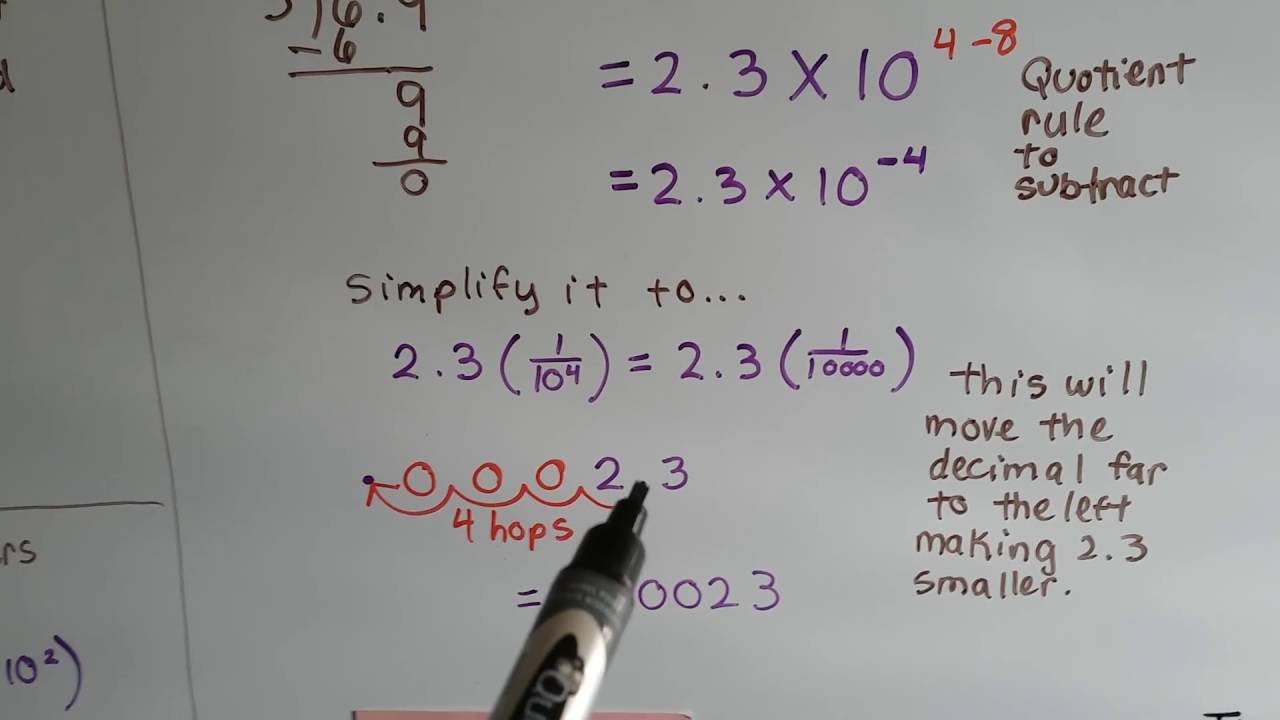 6.9
-6
9
9
0
= 2.3 × 10⁴⁻⁸
Quotient
rule
to
subtract
= 2.3 × 10⁻⁴
Simplify it to...
2.3 (1/10⁴) = 2.3 (1/10000)
this will
move the
decimal far
to the left
making 2.3
smaller.
.0002.3
4 hops
= 0023
rs
10²)